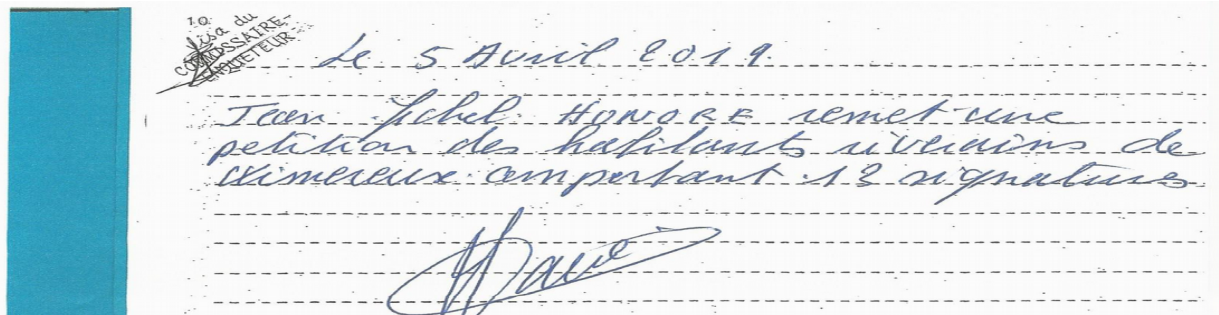 10
Visa du
COMMISSAIRE-
ENQUETEUR
Le 5 Avril 2019.
Jean Michel HONORE remet une
petition des habitants riverains de
Wimereux comportant 13 signatures